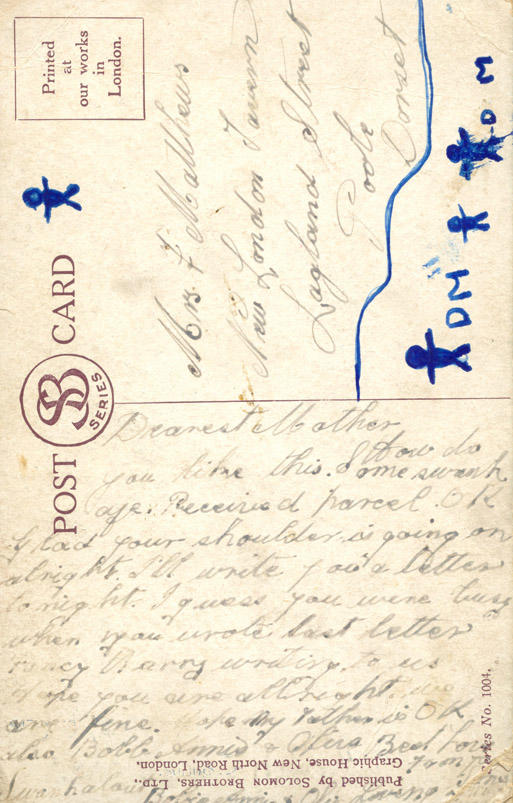 Printed
at
our works
in
London.
POST CARD
SB
SERIES
Mrs F Matthews
New London Tavern
Lagland Street
Poole
Dorset
DM
DM
Dearest Mother
How do
you like this. Some swank
aye. Received parcel OK
Glad your shoulder is going on
alright. I'll write you a letter
tonight. I guess you were busy
when you wrote last letter
Fancy Barry writing to us
Hope you are allright. we
are fine. Hope my Father is OK
also Bob
Series No. 1004.
Published by SOLOMON BROTHERS, LTD.,
Graphic House, New North Road, London.